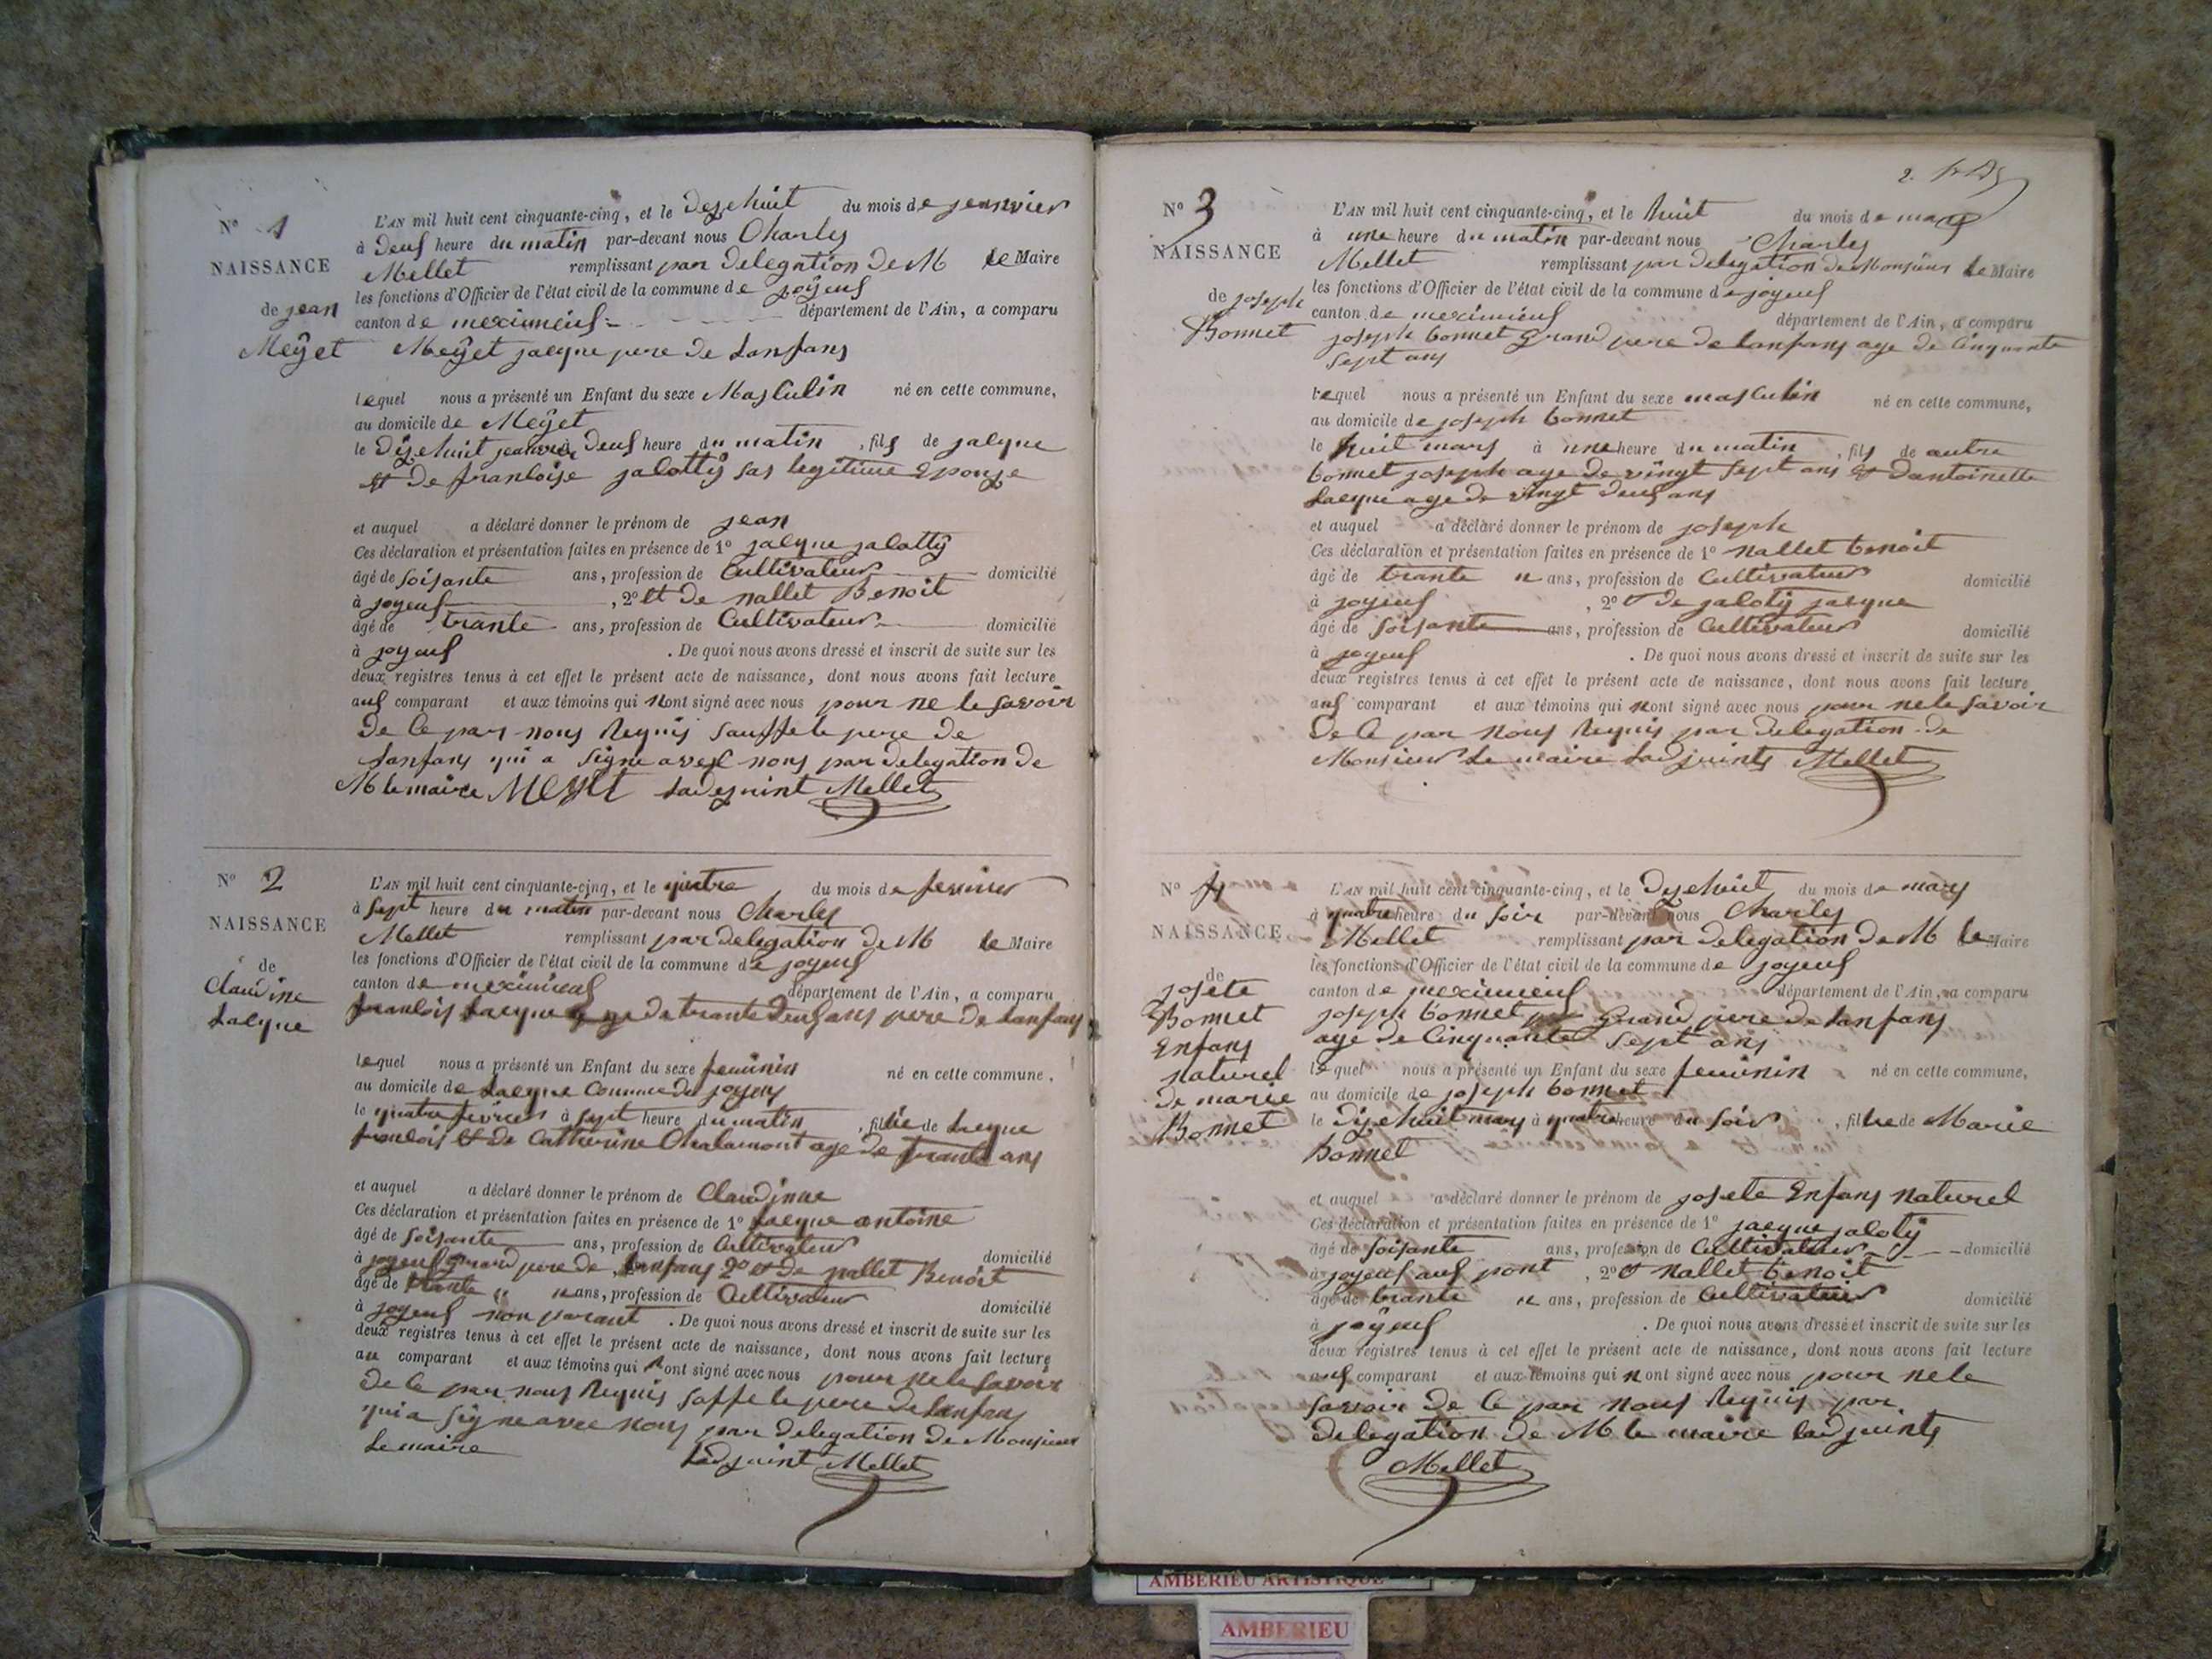 N° 1
NAISSANCE
de jean
Meÿet
L'AN mil huit cent cinquante-cinq, et le dizehuit du mois de jeanvier
à deus heure du matin par-devant nous Charles
Mellet remplissant par delegation de M le Maire
les fonctions d'Officier de l'état civil de la commune de joÿeus
canton de meximieus département de l'Ain, a comparu
Meÿet jacque pere de Lanfans
lequel nous a présenté un Enfant du sexe Masculin né en cette commune,
au domicile de Meÿet
le dizehuit jeanvier à deus heure du matin, fils de jacque
et de francoise jalottÿ sas legitime Epouse
et auquel a déclaré donner le prénom de jean
Ces déclaration et présentation faites en présence de 1° jacque jalottÿ
âgé de soisante ans, profession de Cultivateur domicilié
à joyeus, 2° et de nallet Benoit
âgé de trante ans, profession de Cultivateur domicilié
à joyeus. De quoi nous avons dressé et inscrit de suite sur les
deux registres tenus à cet effet le présent acte de naissance, dont nous avons fait lecture
aus comparant et aux témoins qui nont signé avec nous pour ne le savoir
de ce par nous Requis sauffe le pere de
Lanfans qui a signe avec nous par delegation de
M le maire Meÿet Ladjoint Mellet
N° 2
NAISSANCE
de
Claudine
Lacque
L'AN mil huit cent cinquante-cinq, et le quatre du mois de fevrier
à sept heure du matin par-devant nous Charles
Mellet remplissant par delegation de M le Maire
les fonctions d'Officier de l'état civil de la commune de joyeus
canton de meximieus département de l'Ain, a comparu
francois Lacque age de trante deus ans pere de Lanfans
lequel nous a présenté un Enfant du sexe feminin né en cette commune,
au domicile de Lacque Commune de joyeus
le quatre fevrier à sept heure du matin, fille de Lacque
francois et de Catherine Chalamont age de trante ans
et auquel a déclaré donner le prénom de Claudinne
Ces déclaration et présentation faites en présence de 1° Lacque antoine
âgé de soisante ans, profession de Cultivateur domicilié
à joyeus grand pere de Lanfans 2° et de nallet Benoit
âgé de trante ans, profession de Cultivateur domicilié
à joyeus non parant. De quoi nous avons dressé et inscrit de suite sur les
deux registres tenus à cet effet le présent acte de naissance, dont nous avons fait lecture
au comparant et aux témoins qui nont signé avec nous pour ne le savoir
de ce par nous Requis saffe le pere de Lanfans
qui a signe avec nous par delegation de Monsieur
Le maire Ladjoint Mellet
2.
N° 3
NAISSANCE
de joseph
Bonnet
L'AN mil huit cent cinquante-cinq, et le huit du mois de mars
à une heure du matin par-devant nous Charles
Mellet remplissant par delegation de Monsieur le Maire
les fonctions d'Officier de l'état civil de la commune de joyeus
canton de meximieus département de l'Ain, a comparu
joseph bonnet Grand pere de lanfans age de Cinquante
sept ans
lequel nous a présenté un Enfant du sexe masculin né en cette commune,
au domicile de joseph bonnet
le huit mars à une heure du matin, fils de autre
bonnet joseph age de vingt sept ans et dantoinette
Lacque age de vingt deus ans
et auquel a déclaré donner le prénom de joseph
Ces déclaration et présentation faites en présence de 1° nallet benoit
âgé de trante ans, profession de Cultivateur domicilié
à joyeus, 2° et de jalotÿ jacque
âgé de soisante ans, profession de Cultivateur domicilié
à joyeus. De quoi nous avons dressé et inscrit de suite sur les
deux registres tenus à cet effet le présent acte de naissance, dont nous avons fait lecture
aus comparant et aux témoins qui nont signé avec nous pour ne le savoir
de ce par nous Requis par delegation de
Monsieur Le maire Ladjoints Mellet
N° 4
NAISSANCE
de
josete
Bonnet
Enfans
naturel
de marie
Bonnet
L'AN mil huit cent cinquante-cinq, et le dizehuit du mois de mars
à quatre heure du soir par-devant nous Charles
Mellet remplissant par delegation de M le Maire
les fonctions d'Officier de l'état civil de la commune de joyeus
canton de meximieus département de l'Ain, a comparu
joseph bonnet Grand pere de Lanfans
age de Cinquante sept ans
lequel nous a présenté un Enfant du sexe feminin né en cette commune,
au domicile de joseph bonnet
le dizehuit mars à quatre heure du soir, fille de Marie
Bonnet
et auquel a déclaré donner le prénom de josete Enfans naturel
Ces déclaration et présentation faites en présence de 1° jacque jalotÿ
âgé de soisante ans, profession de Cultivateur domicilié
à joyeus aus pont, 2° et nallet benoit
âgé de trante ans, profession de Cultivateur domicilié
à joÿeus. De quoi nous avons dressé et inscrit de suite sur les
deux registres tenus à cet effet le présent acte de naissance, dont nous avons fait lecture
aus comparant et aux témoins qui nont signé avec nous pour ne le
savoir de ce par nous Requis par
delegation de M le maire ladjoints
Mellet
AMBERIEU ARTISTIQUE
AMBERIEU